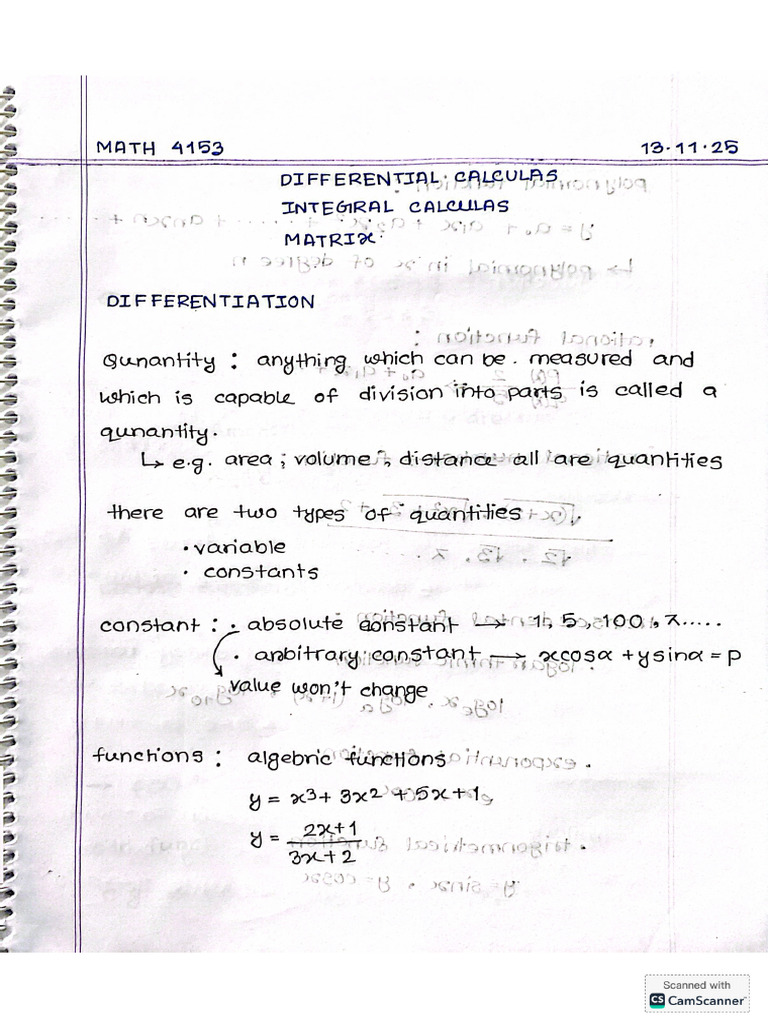 MATH 4153 13.11.25
DIFFERENTIAL CALCULAS
INTEGRAL CALCULAS
MATRIX
DIFFERENTIATION
Qunantity : anything which can be measured and
which is capable of division into parts is called a
qunantity.
↳ e.g. area ; volume ; distance all are quantities
there are two types of quantities
• variable
• constants
constant : • absolute constant → 1, 5, 100, π.....
• arbitrary constant → xcosα + ysinα = p
value won't change
functions : algebric functions
y = x³ + 3x² + 5x + 1
y = 2x+1
3x+2
Scanned with
CS CamScanner